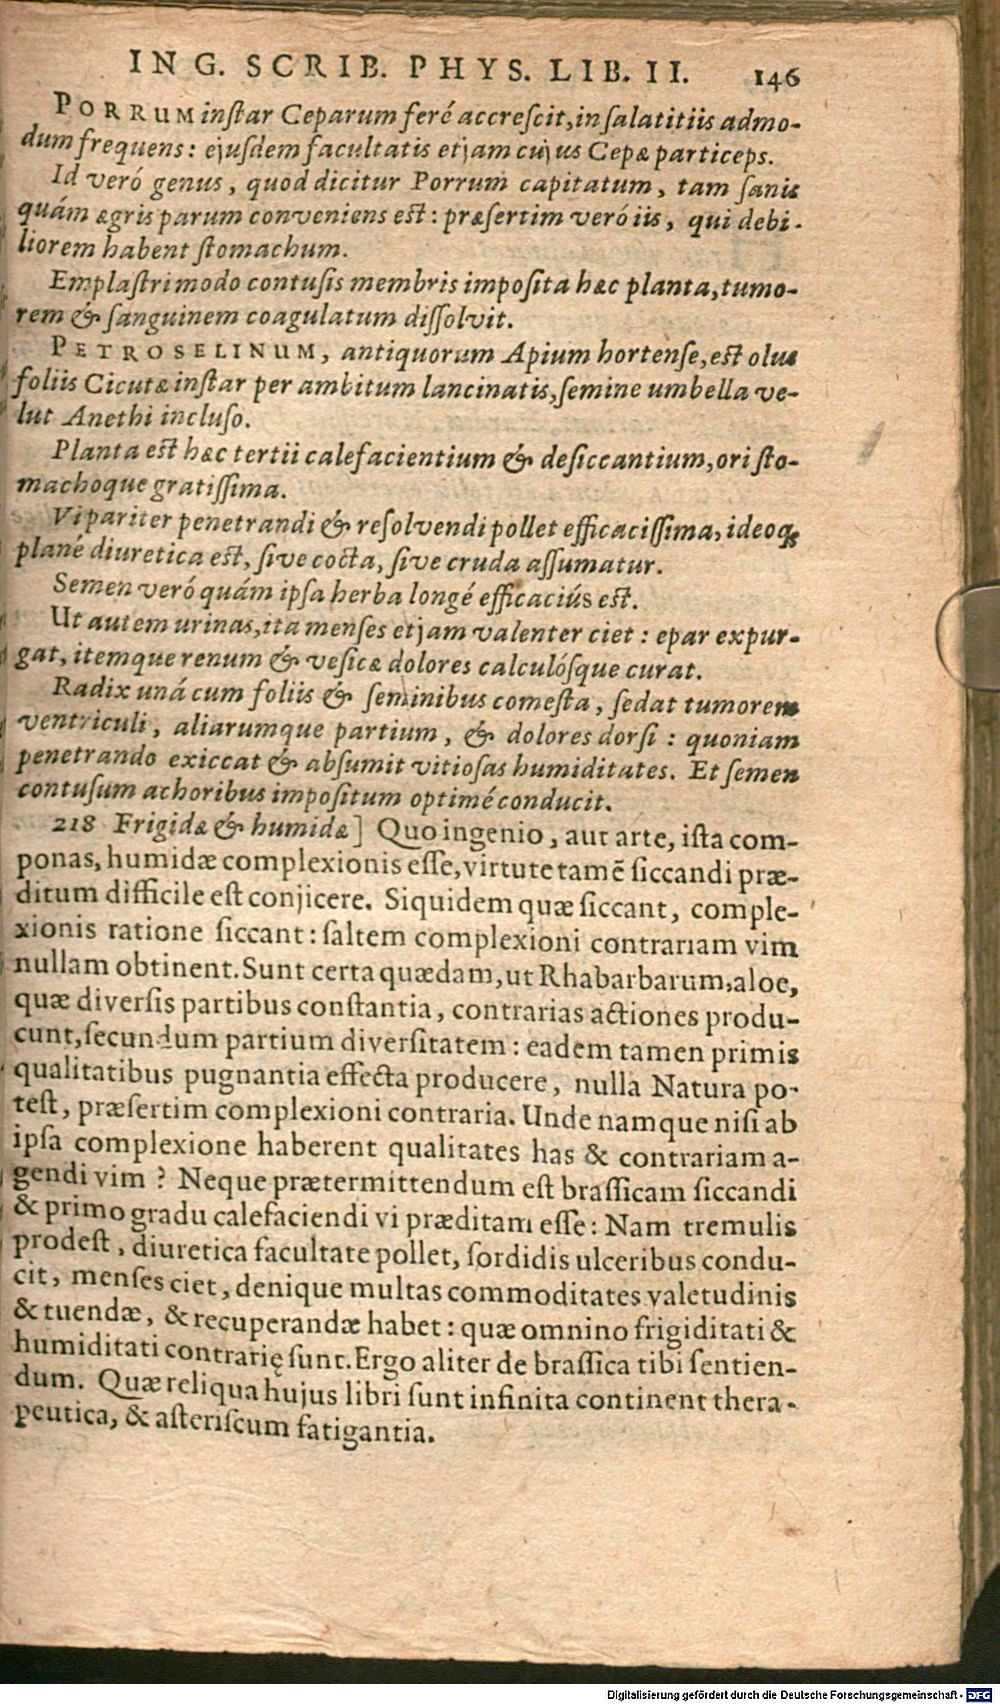 IN G. SCRIB. PHYS. LIB. II. 146
PORRUM instar Ceparum feré accrescit, in salatitiis admo-
dum frequens: ejusdem facultatis etjam cujus Cepæ particeps.
Id veró genus, quod dicitur Porrum capitatum, tam sanis
quám ægris parum conveniens est: præsertim veró iis, qui debi-
liorem habent stomachum.
Emplastri modo contusis membris imposita hæc planta, tumo-
rem & sanguinem coagulatum dissolvit.
PETROSELINUM, antiquorum Apium hortense, est olus
foliis Cicutæ instar per ambitum lancinatis, semine umbella ve-
lut Anethi incluso.
Planta est hæc tertii calefacientium & desiccantium, ori sto-
machoque gratissima.
Vi pariter penetrandi & resolvendi pollet efficacissima, ideoq;
plané diuretica est, sive cocta, sive cruda assumatur.
Semen veró quám ipsa herba longé efficaciús est.
Ut autem urinas, ita menses etjam valenter ciet: epar expur-
gat, itemque renum & vesicæ dolores calculósque curat.
Radix uná cum foliis & seminibus comesta, sedat tumorem
ventriculi, aliarumque partium, & dolores dorsi: quoniam
penetrando exiccat & absumit vitiosas humiditates. Et semen
contusum achoribus impositum optimé conducit.
218 Frigidæ & humidæ] Quo ingenio, aut arte, ista com-
ponas, humidæ complexionis esse, virtute tamē siccandi præ-
ditum difficile est conjicere. Siquidem quæ siccant, comple-
xionis ratione siccant: saltem complexioni contrariam vim
nullam obtinent. Sunt certa quædam, ut Rhabarbarum, aloe,
quæ diversis partibus constantia, contrarias actiones produ-
cunt, secundum partium diversitatem: eadem tamen primis
qualitatibus pugnantia effecta producere, nulla Natura po-
test, præsertim complexioni contraria. Unde namque nisi ab
ipsa complexione haberent qualitates has & contrariam a-
gendi vim? Neque prætermittendum est brassicam siccandi
& primo gradu calefaciendi vi præditam esse: Nam tremulis
prodest, diuretica facultate pollet, sordidis ulceribus condu-
cit, menses ciet, denique multas commoditates valetudinis
& tuendæ, & recuperandæ habet: quæ omnino frigiditati &
humiditati contrarię sunt. Ergo aliter de brassica tibi sentien-
dum. Quæ reliqua hujus libri sunt infinita continent thera-
peutica, & asteriscum fatigantia.
Digitalisierung gefördert durch die Deutsche Forschungsgemeinschaft - DFG